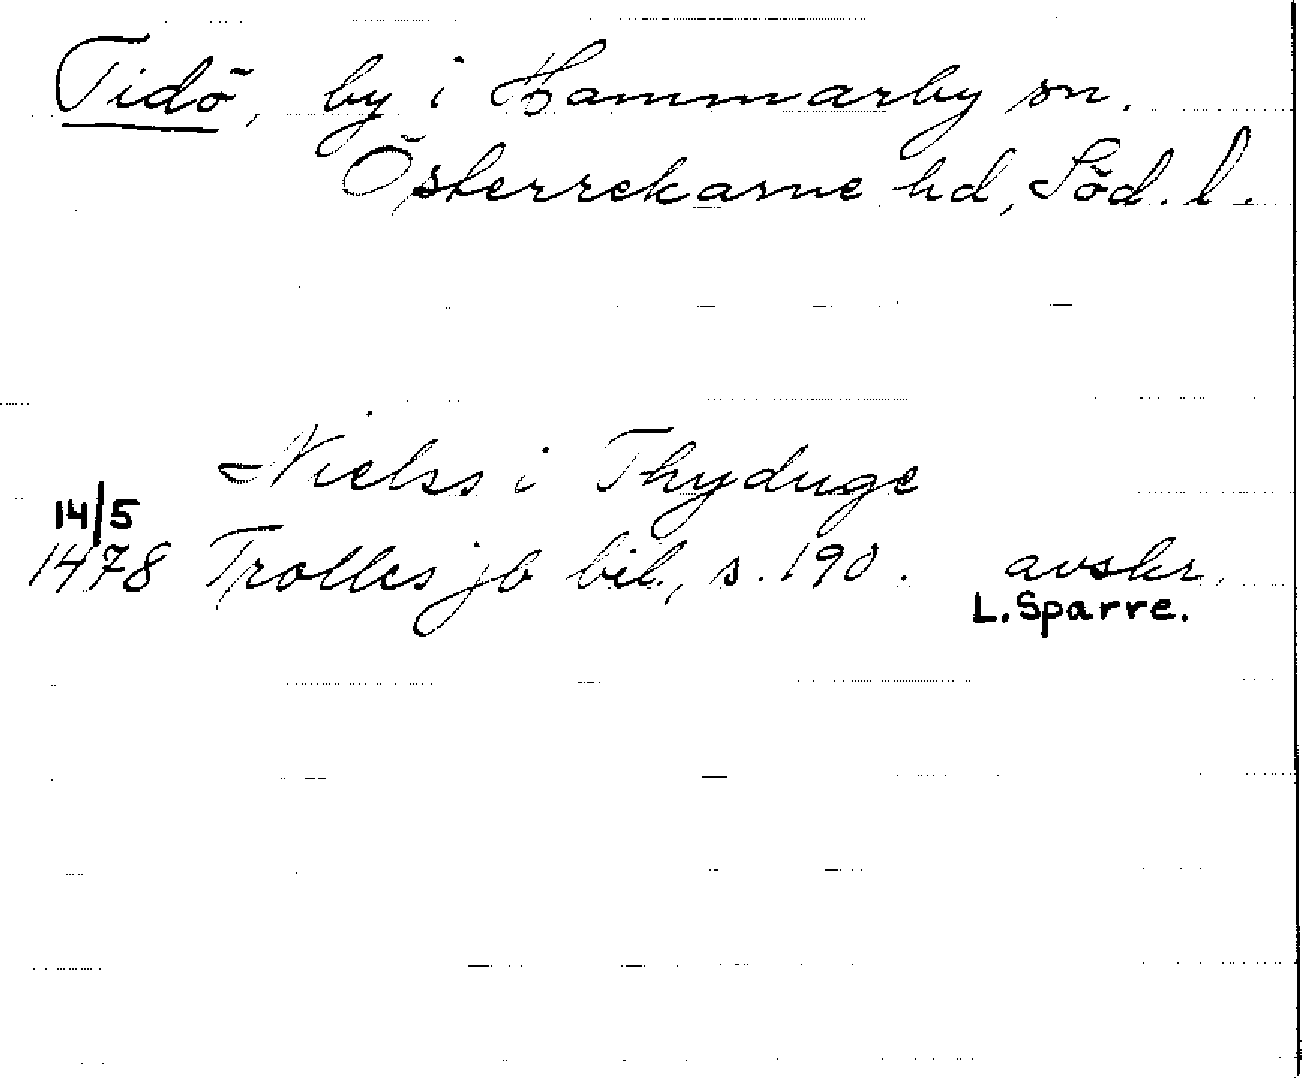 Tidö, by i Hammarby sn.
Österrekarne hd, Söd. l.
Nielss i Thyduge
14/5
1478 Trolles jb bil, s. 190. avskr.
L. Sparre.